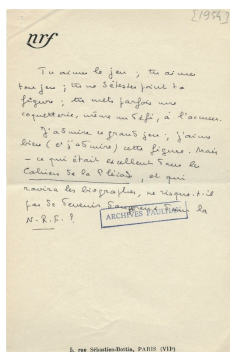 [1954]
nrf
Tu aimes le jeu ; tu aimes
ton jeu ; tu ne détestes point ta
figure ; tu mets parfois une
coquetterie, même un défi, à l'accuser.
J'admire ce grand jeu ; j'aime
bien (et j'admire) cette figure. Mais
— ce qui était excellent dans les
Cahiers de la Pléiade, et qui
ravira les biographes, ne risque-t-il
pas de devenir dans la
N.R.F. ?
ARCHIVES PAULHAN
5, rue Sébastien-Bottin, PARIS (VIIe)